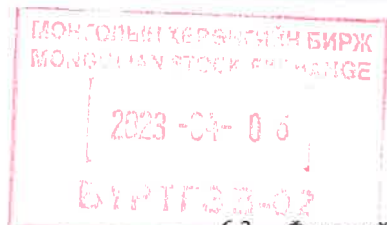 МОНГОЛЫН ХӨРӨНГИЙН БИРЖ
MONGOLIAN STOCK EXCHANGE
2023 -04- 0
БҮРТГЭЛ-02
6.2